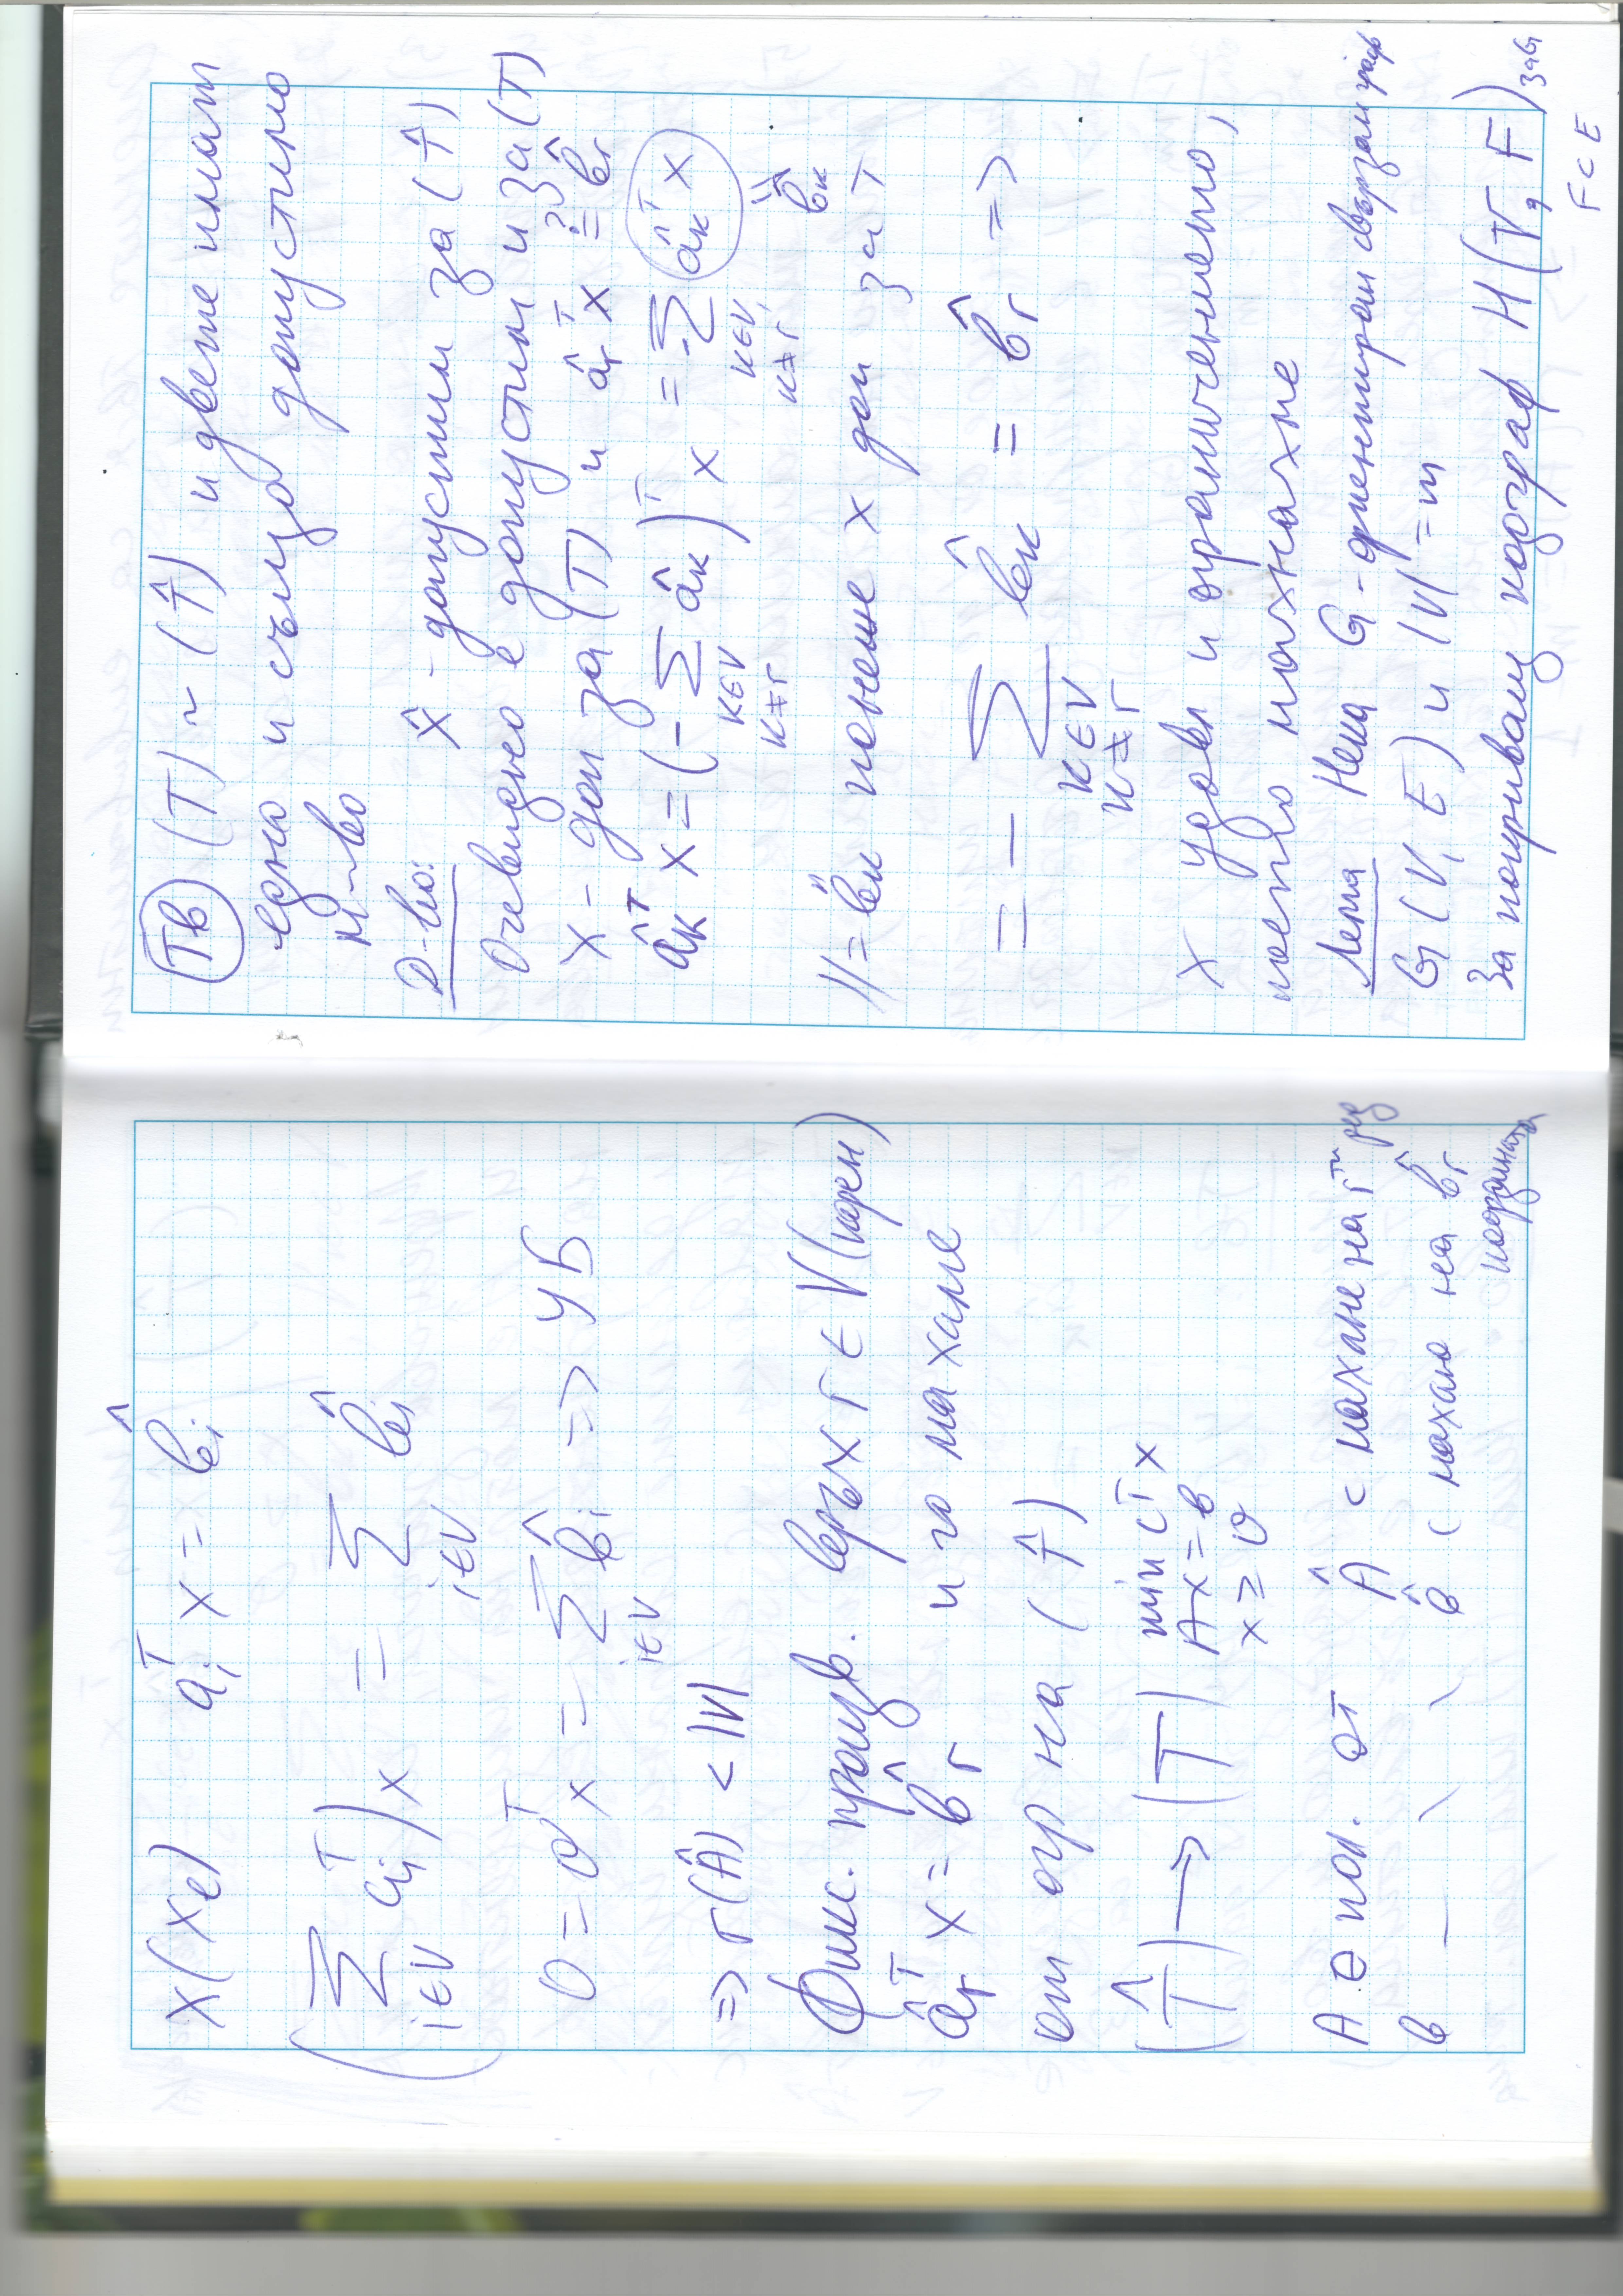 x(xₑ) aᵢᵀ x = b̂ᵢ
(∑ aᵢᵀ) x = ∑ b̂ᵢ
i∈V i∈V
0 = 0ᵀ x = ∑ b̂ᵢ => УБ
i∈V
=> r(Â) < |V|
Фикс. произв. връх r ∈ V (корен)
âᵣᵀ x = b̂ᵣ и го махаме
от огр на (T̂)
(T̂) → (T) min cᵀx
Ax = b
x ≥ 0
A е пол. от Â с махане на r ред
b — \ \ b̂ (махаме на b̂ᵣ
координата
Тв (T) ~ (T̂) и двете имат
едно и също допустимо
м-во
Д-во: x̂ - допустим за (T̂)
Очевидно е допустим и за (T)
x - доп за (T) и âᵣᵀ x =? b̂ᵣ
âₖᵀ x = (- ∑ âₖ)ᵀ x = - ∑ âₖᵀ x
k∈V k≠r k∈V, k≠r = b̂ₖ
// = bₖ понеже x доп за T
= - ∑ b̂ₖ = b̂ᵣ =>
k∈V
k≠r
x удовл и ограничението,
което махнахме
Лема Нека G - ориентиран свързан граф
G(V, E) и |V| = m
За покриващ подграф H(V, F) F ⊂ E